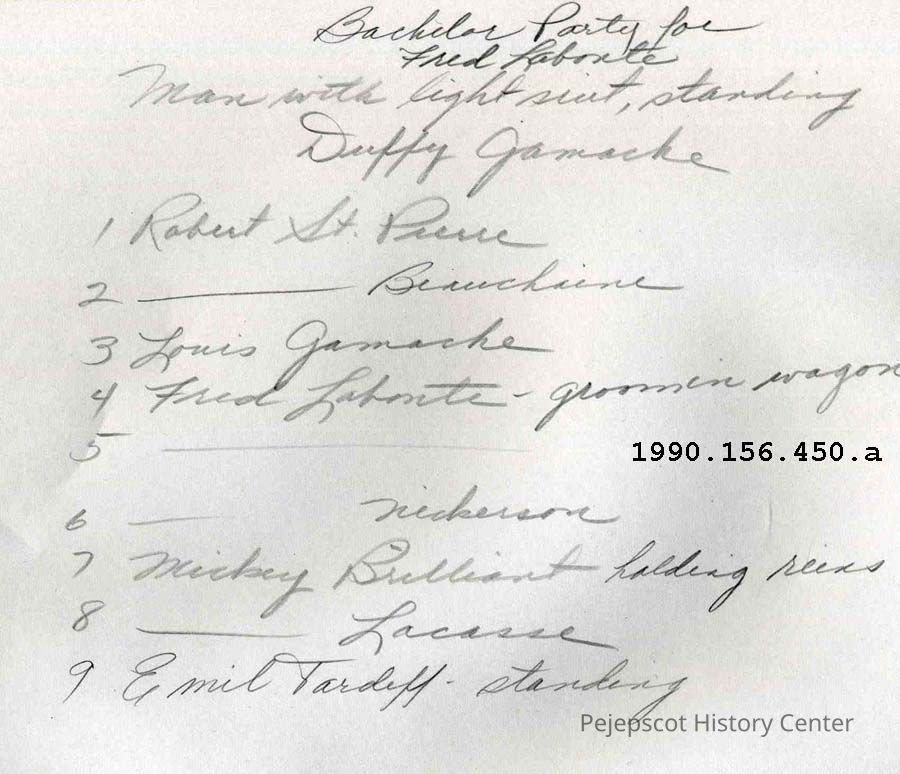 Bachelor Party for
Fred Labonte
Man with light siut, standing
Duffy Gamache
1 Robert St. Pierre
2 ——— Beauchaine
3 Louis Gamache
4 Fred Labonte - groom in wagon
5 ———
1990.156.450.a
6 — Nickerson
7 Mickey Brilliant holding reins
8 ——— Lacasse
9 Emil Tardiff - standing
Pejepscot History Center